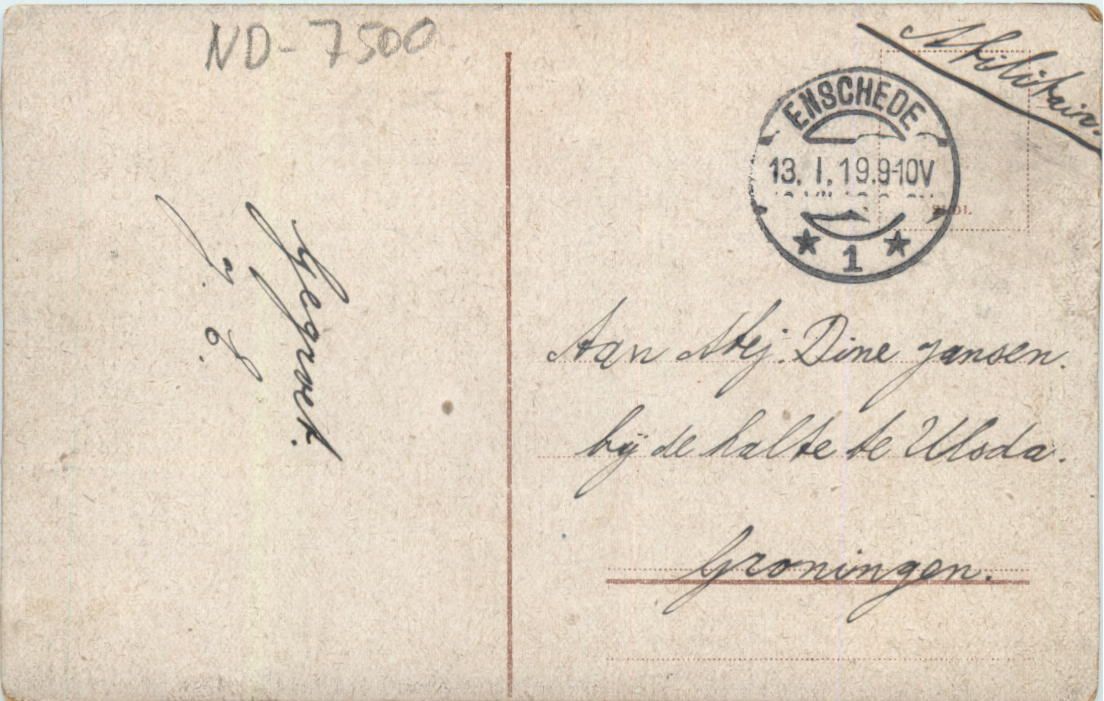 ND-7500
Militair.
ENSCHEDE
13. I. 19.9-10V
1
Aan Mej. Dine Jansen.
bij de halte te Ulsda.
Groningen.
Gegroet.